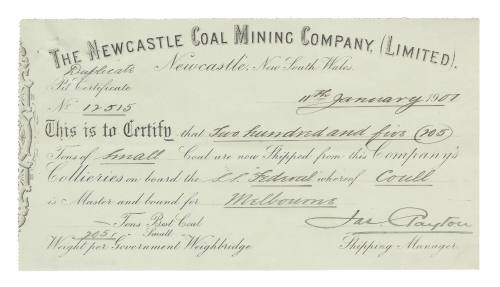 THE NEWCASTLE COAL MINING COMPANY, (LIMITED).
Duplicate Newcastle, New South Wales.
Pit Certificate
No 12515 11th January 1901
This is to Certify that Two hundred and five (205)
Tons of Small Coal are now Shipped from this Company's
Collieries on board the s.s. "Federal" whereof Coull
is Master and bound for Melbourne
— Tons Best Coal
205 " Small "
Weight per Government Weighbridge Jas. Clayton
Shipping Manager.